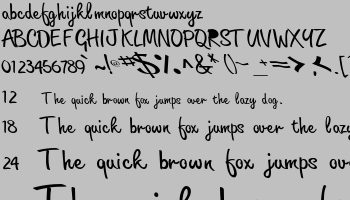 abcdefghijklmnopqrstuvwxyz
ABCDEFGHIJKLMNOPQRSTUVWXYZ
0123456789 ~!@#$%^&*()-_+=>;<.[
12 The quick brown fox jumps over the lazy dog.
18 The quick brown fox jumps over the lazy
24 The quick brown fox jumps over